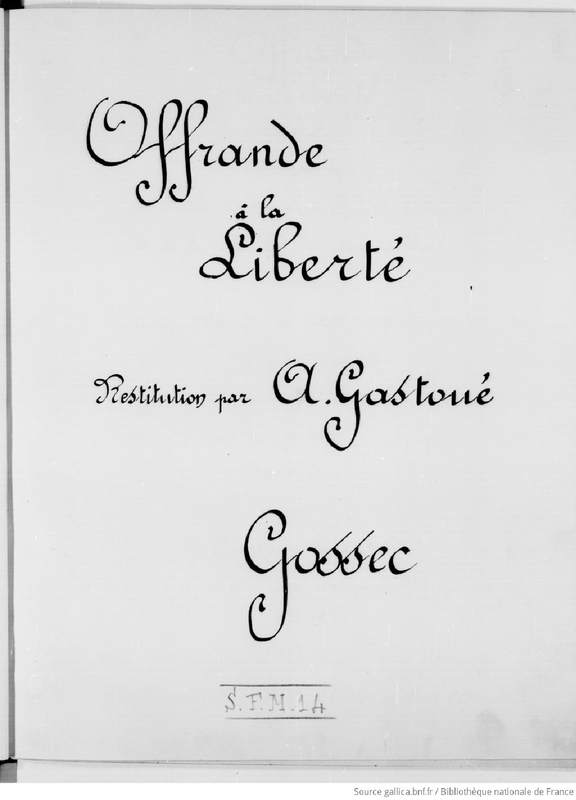 Offrande
à la
Liberté
Restitution par A. Gastoué
Gossec
S.F.M.14
Source gallica.bnf.fr / Bibliothèque nationale de France